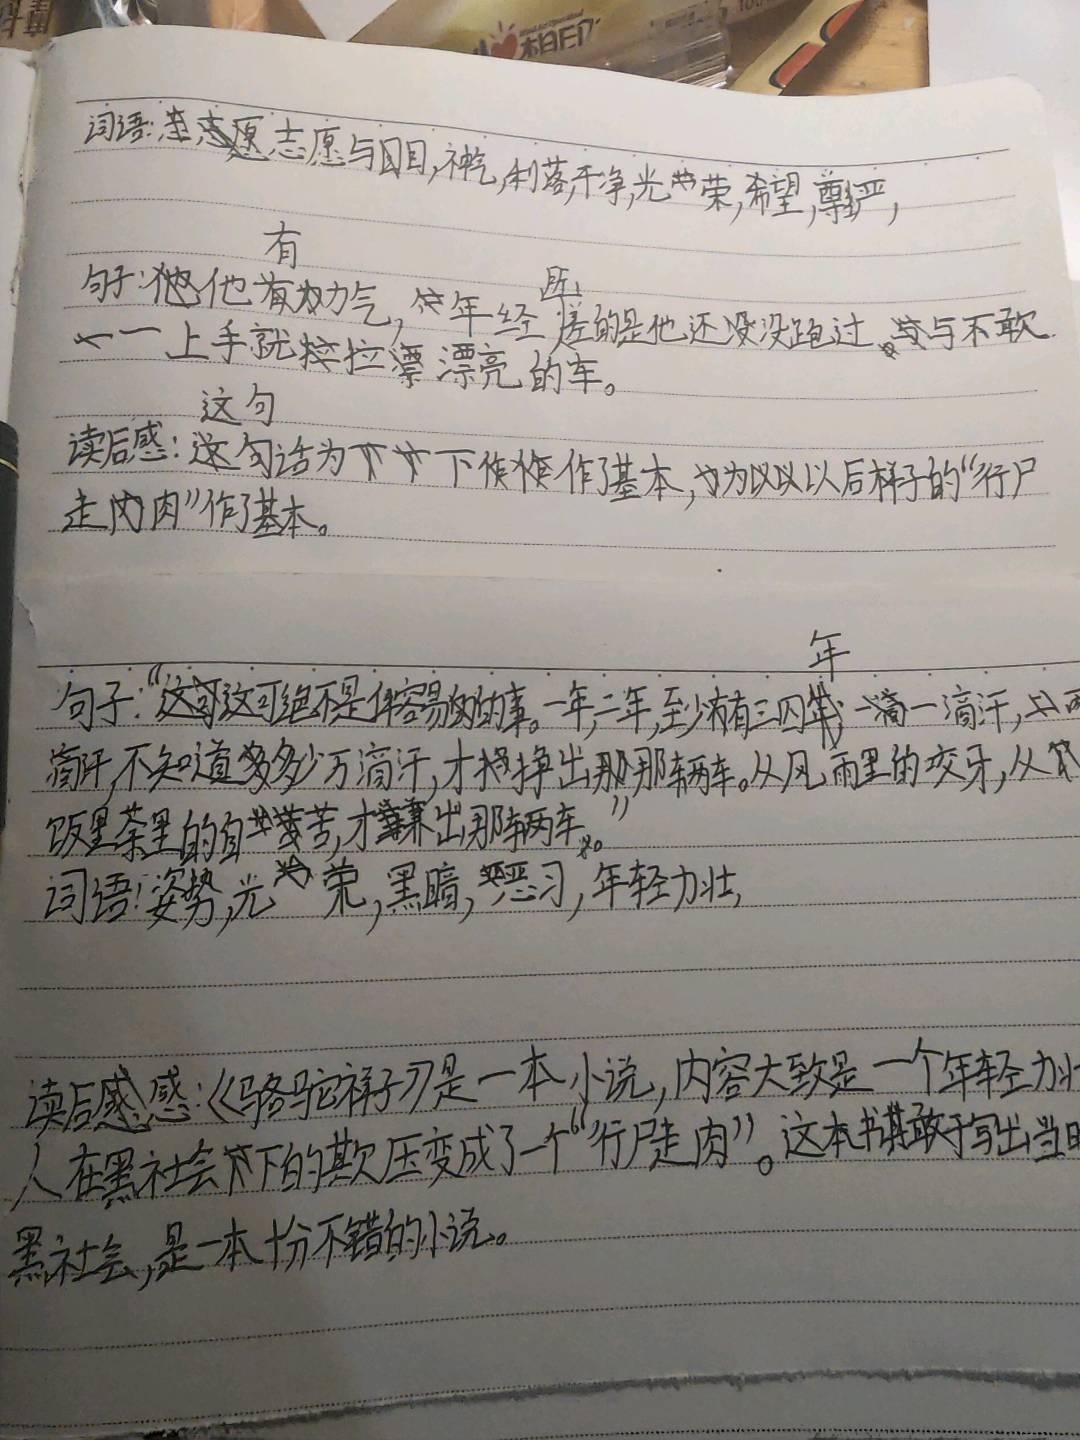 心相印
词语:志愿,志愿与因目,神气,利落,干净,光荣,希望,尊严,
有
句子:他他有力气,年经
所差的是他还没没跑过。与不敢
一一上手就拉漂漂亮的车。
这句
读后感:这句话为下作了基本,为以以以后样子的“行尸
走肉肉”作了基本。
年
句子:“这可这可绝不是件容易的事。一年,二年,至少有有三四年;一滴一滴汗,
滴汗,不知道多多少万滴汗,才挣出那那辆车。从风雨里的咬牙,从
饭里茶里的自苦,才赚出那辆车。”
词语:姿势,光荣,黑暗,恶习,年轻力壮,
读后感感:《骆驼祥子》是一本小说,内容大致是一个年轻力壮
人在黑社会下的欺压变成了一个“行尸走肉”。这本书其敢于写出当时
黑社会,是一本十分不错的小说。